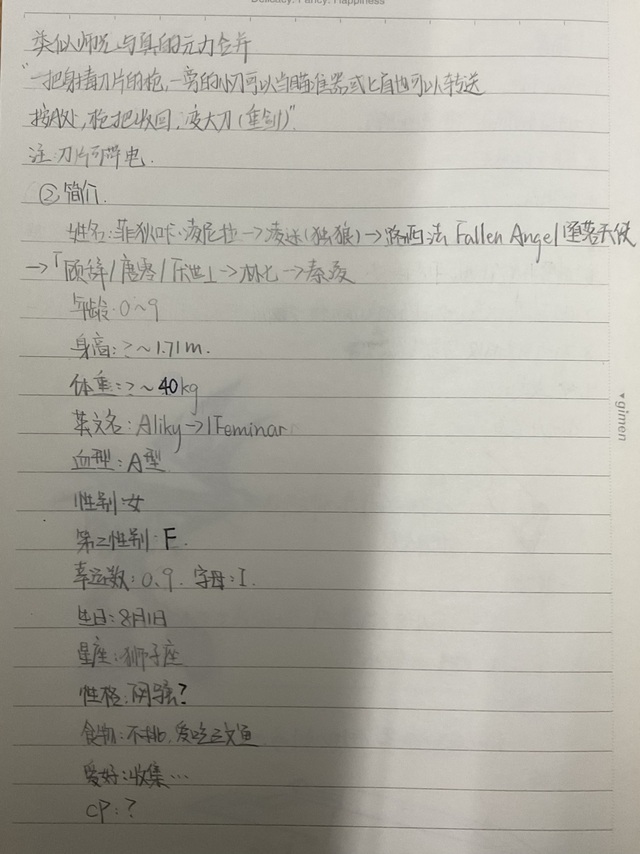 Delicacy. Fancy. Happiness
类似师兄与真的元力合并
"一把身持刀片的枪,一旁的小刀可以当瞄准器或匕首也可以转送
按A处,枪把收回,变大刀(重剑)"
注:刀片可带电.
②简介.
姓名:菲狄咔·凌尼拉→凌迷(独狼)→路西法 Fallen Angel 堕落天使
→「顾辞/唐零/厌世」→林七→秦凌
年龄:0~9
身高:?~1.71m.
体重:?~40kg
英文名:Aliky→IFeminar
血型:A型
性别:女
第二性别:E.
幸运数:0、9. 字母:I.
生日:8月1日
星座:狮子座
性格:阴
食物:不挑,爱吃三文鱼
爱好:收集…
CP:?
gimen